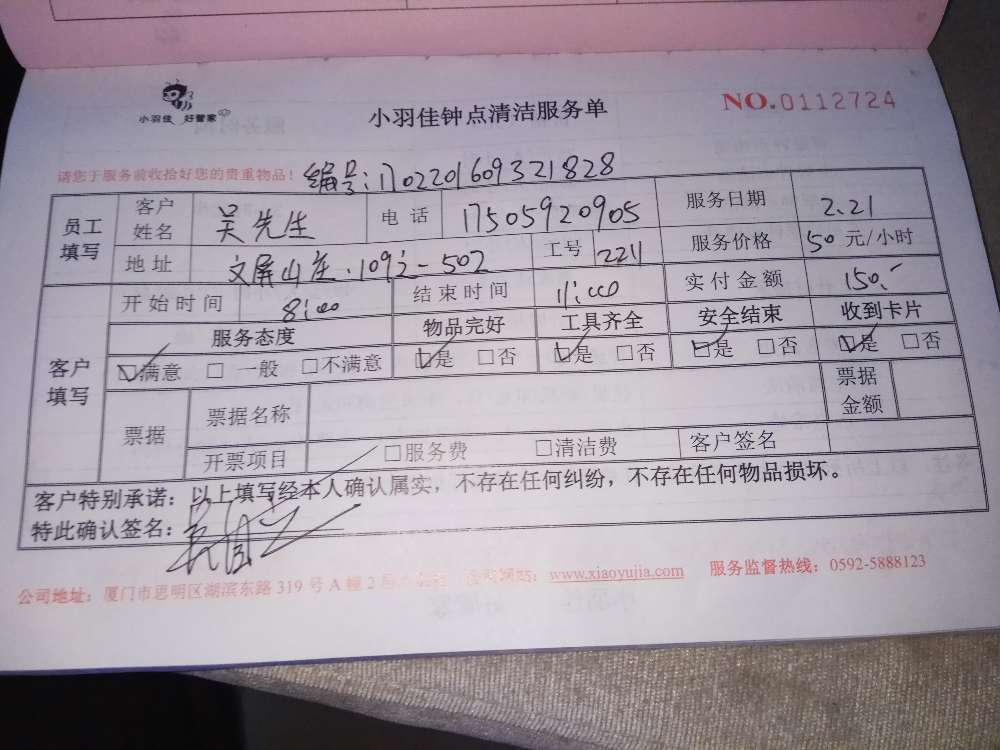 小羽佳 好管家
小羽佳钟点清洁服务单
NO.0112724
请您于服务前收拾好您的贵重物品! 编号:170220169321828
员工填写 客户姓名 吴先生 电话 17505920905 服务日期 2.21
地址 文屏山庄 109 - 502 工号 2211 服务价格 50 元/小时
客户填写 开始时间 8:00 结束时间 11:00 实付金额 150.-
服务态度 物品完好 工具齐全 安全结束 收到卡片
☑满意 □ 一般 □不满意 ☑是 □否 ☑是 □否 ☑是 □否 ☑是 □否
票据 票据名称 票据金额
开票项目 □服务费 □清洁费 客户签名
客户特别承诺:以上填写经本人确认属实,不存在任何纠纷,不存在任何物品损坏。
特此确认签名:
公司地址:厦门市思明区湖滨东路 319 号 A 幢 2 www.xiaoyujia.com 服务监督热线:0592-5888123